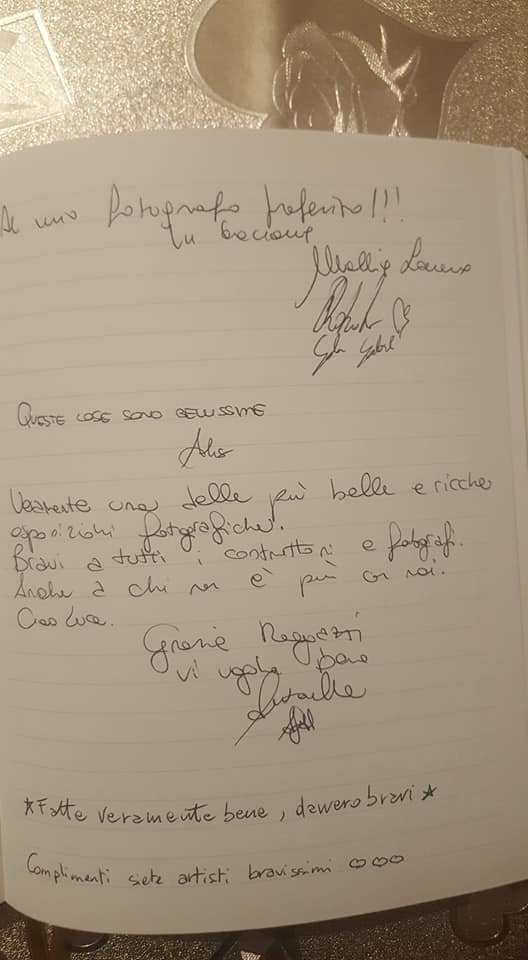 mio fotografo preferito!!!
Un bacione
QUESTE COSE SONO BELLISSIME
una delle più belle e ricche
esposizioni fotografiche.
Bravi a tutti i e fotografi.
Anche a chi non è più con noi.
Ciao Luca.
Grazie Ragazzi
vi voglio bene
*Fatte veramente bene, davvero bravi*
Complimenti siete artisti bravissimi ♡♡♡